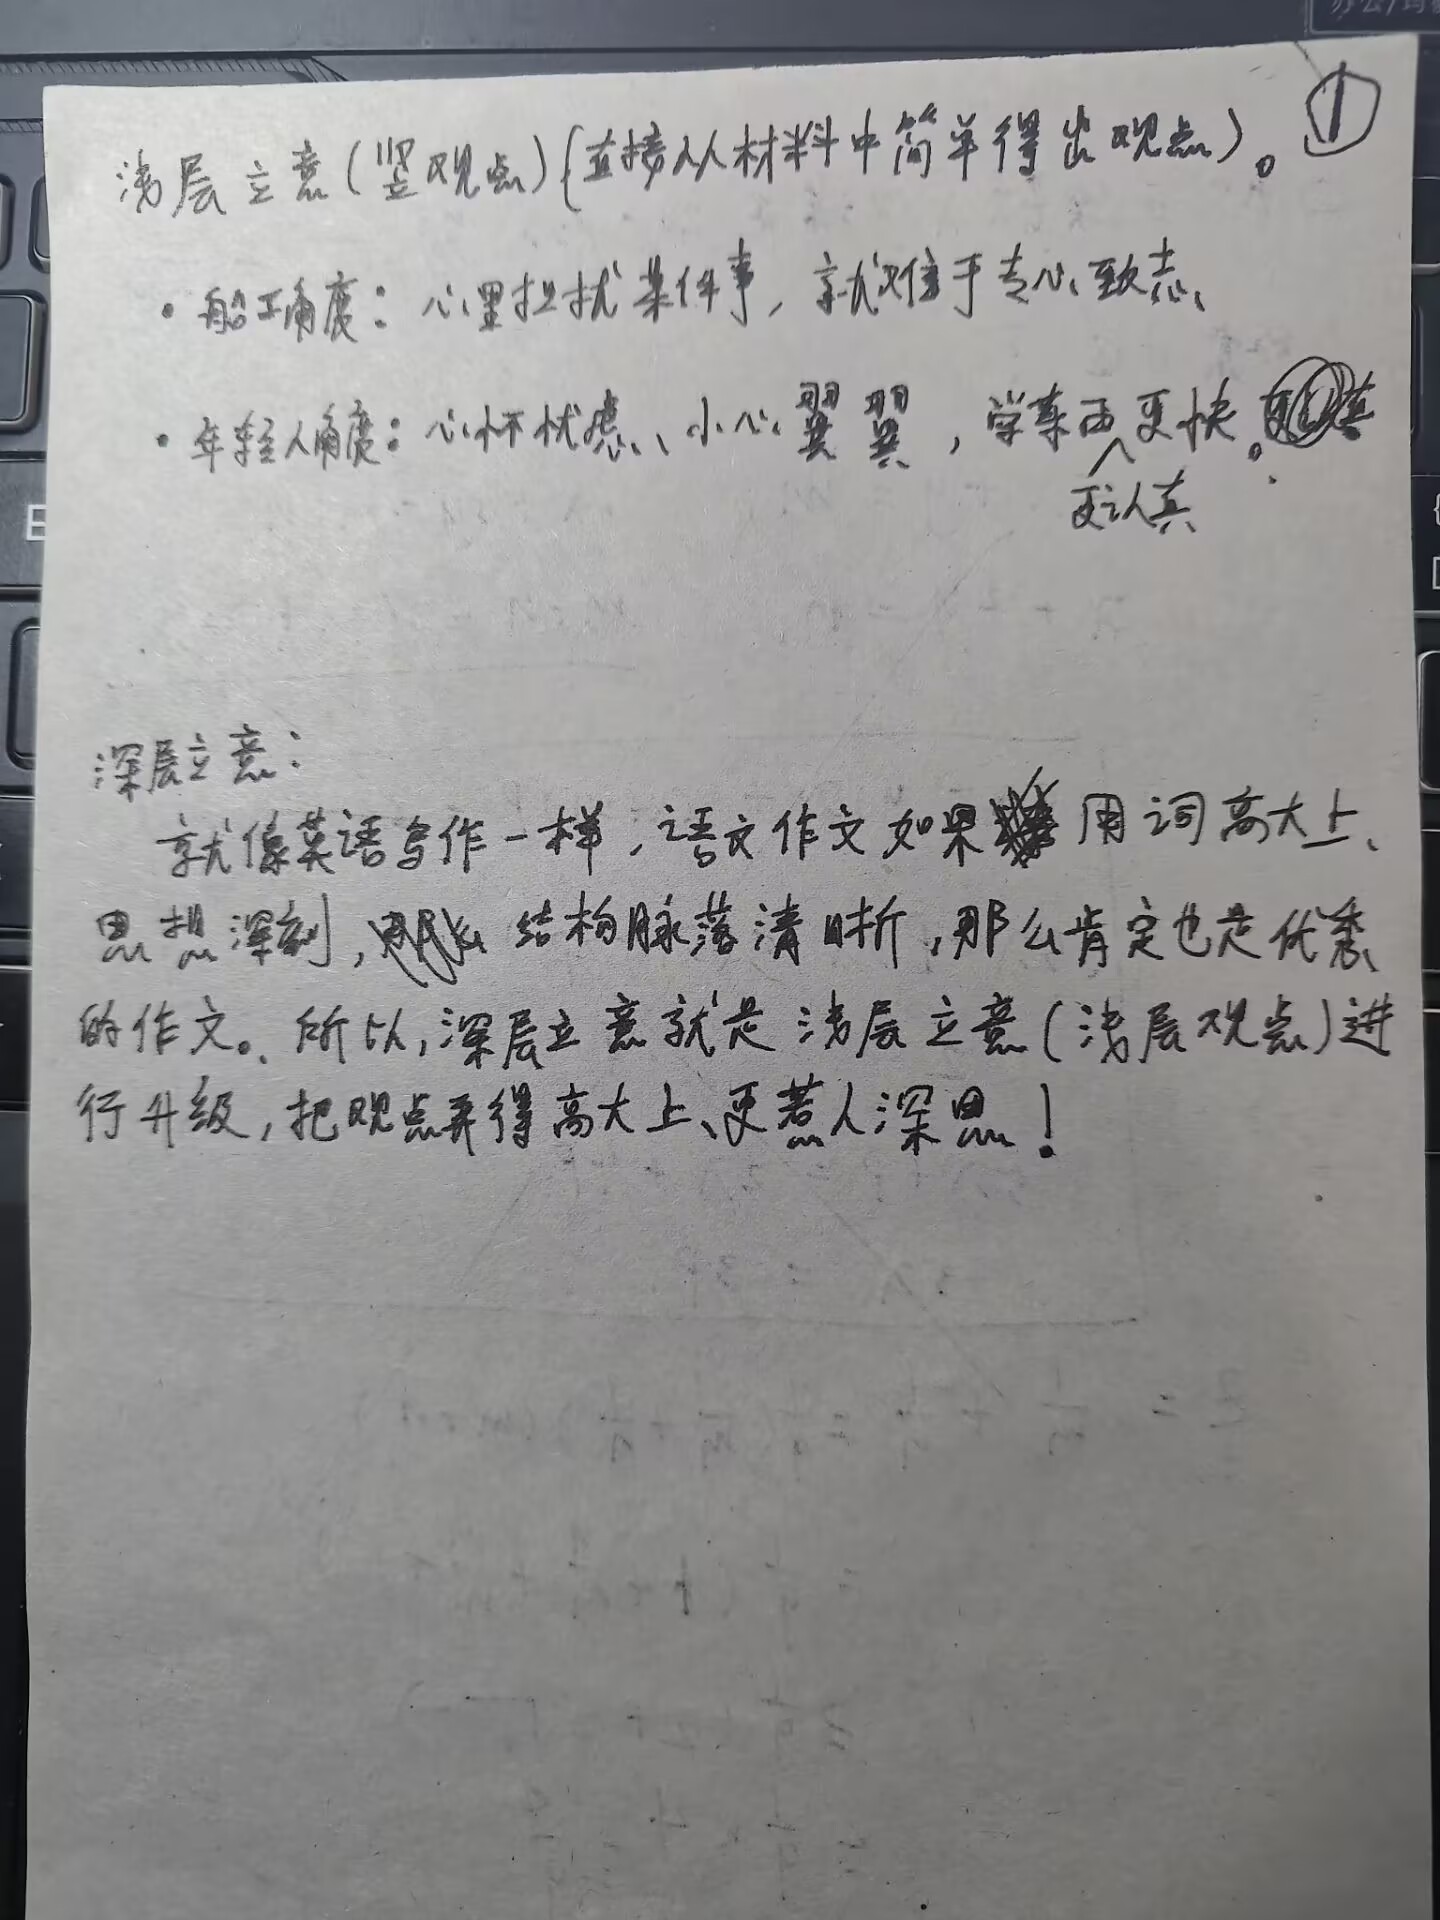 ①
浅层立意(竖观点)(直接从材料中简单得出观点)。
·船工角度：心里担忧某件事，就难于专心致志、
·年轻人角度：心怀忧虑、小心翼翼，学东西更快。
更认真
深层立意：
就像英语写作一样，语文作文如果用词高大上、
思想深刻，结构脉落清晰，那么肯定也是优秀
的作文。所以，深层立意就是浅层立意(浅层观点)进
行升级，把观点弄得高大上、更惹人深思！